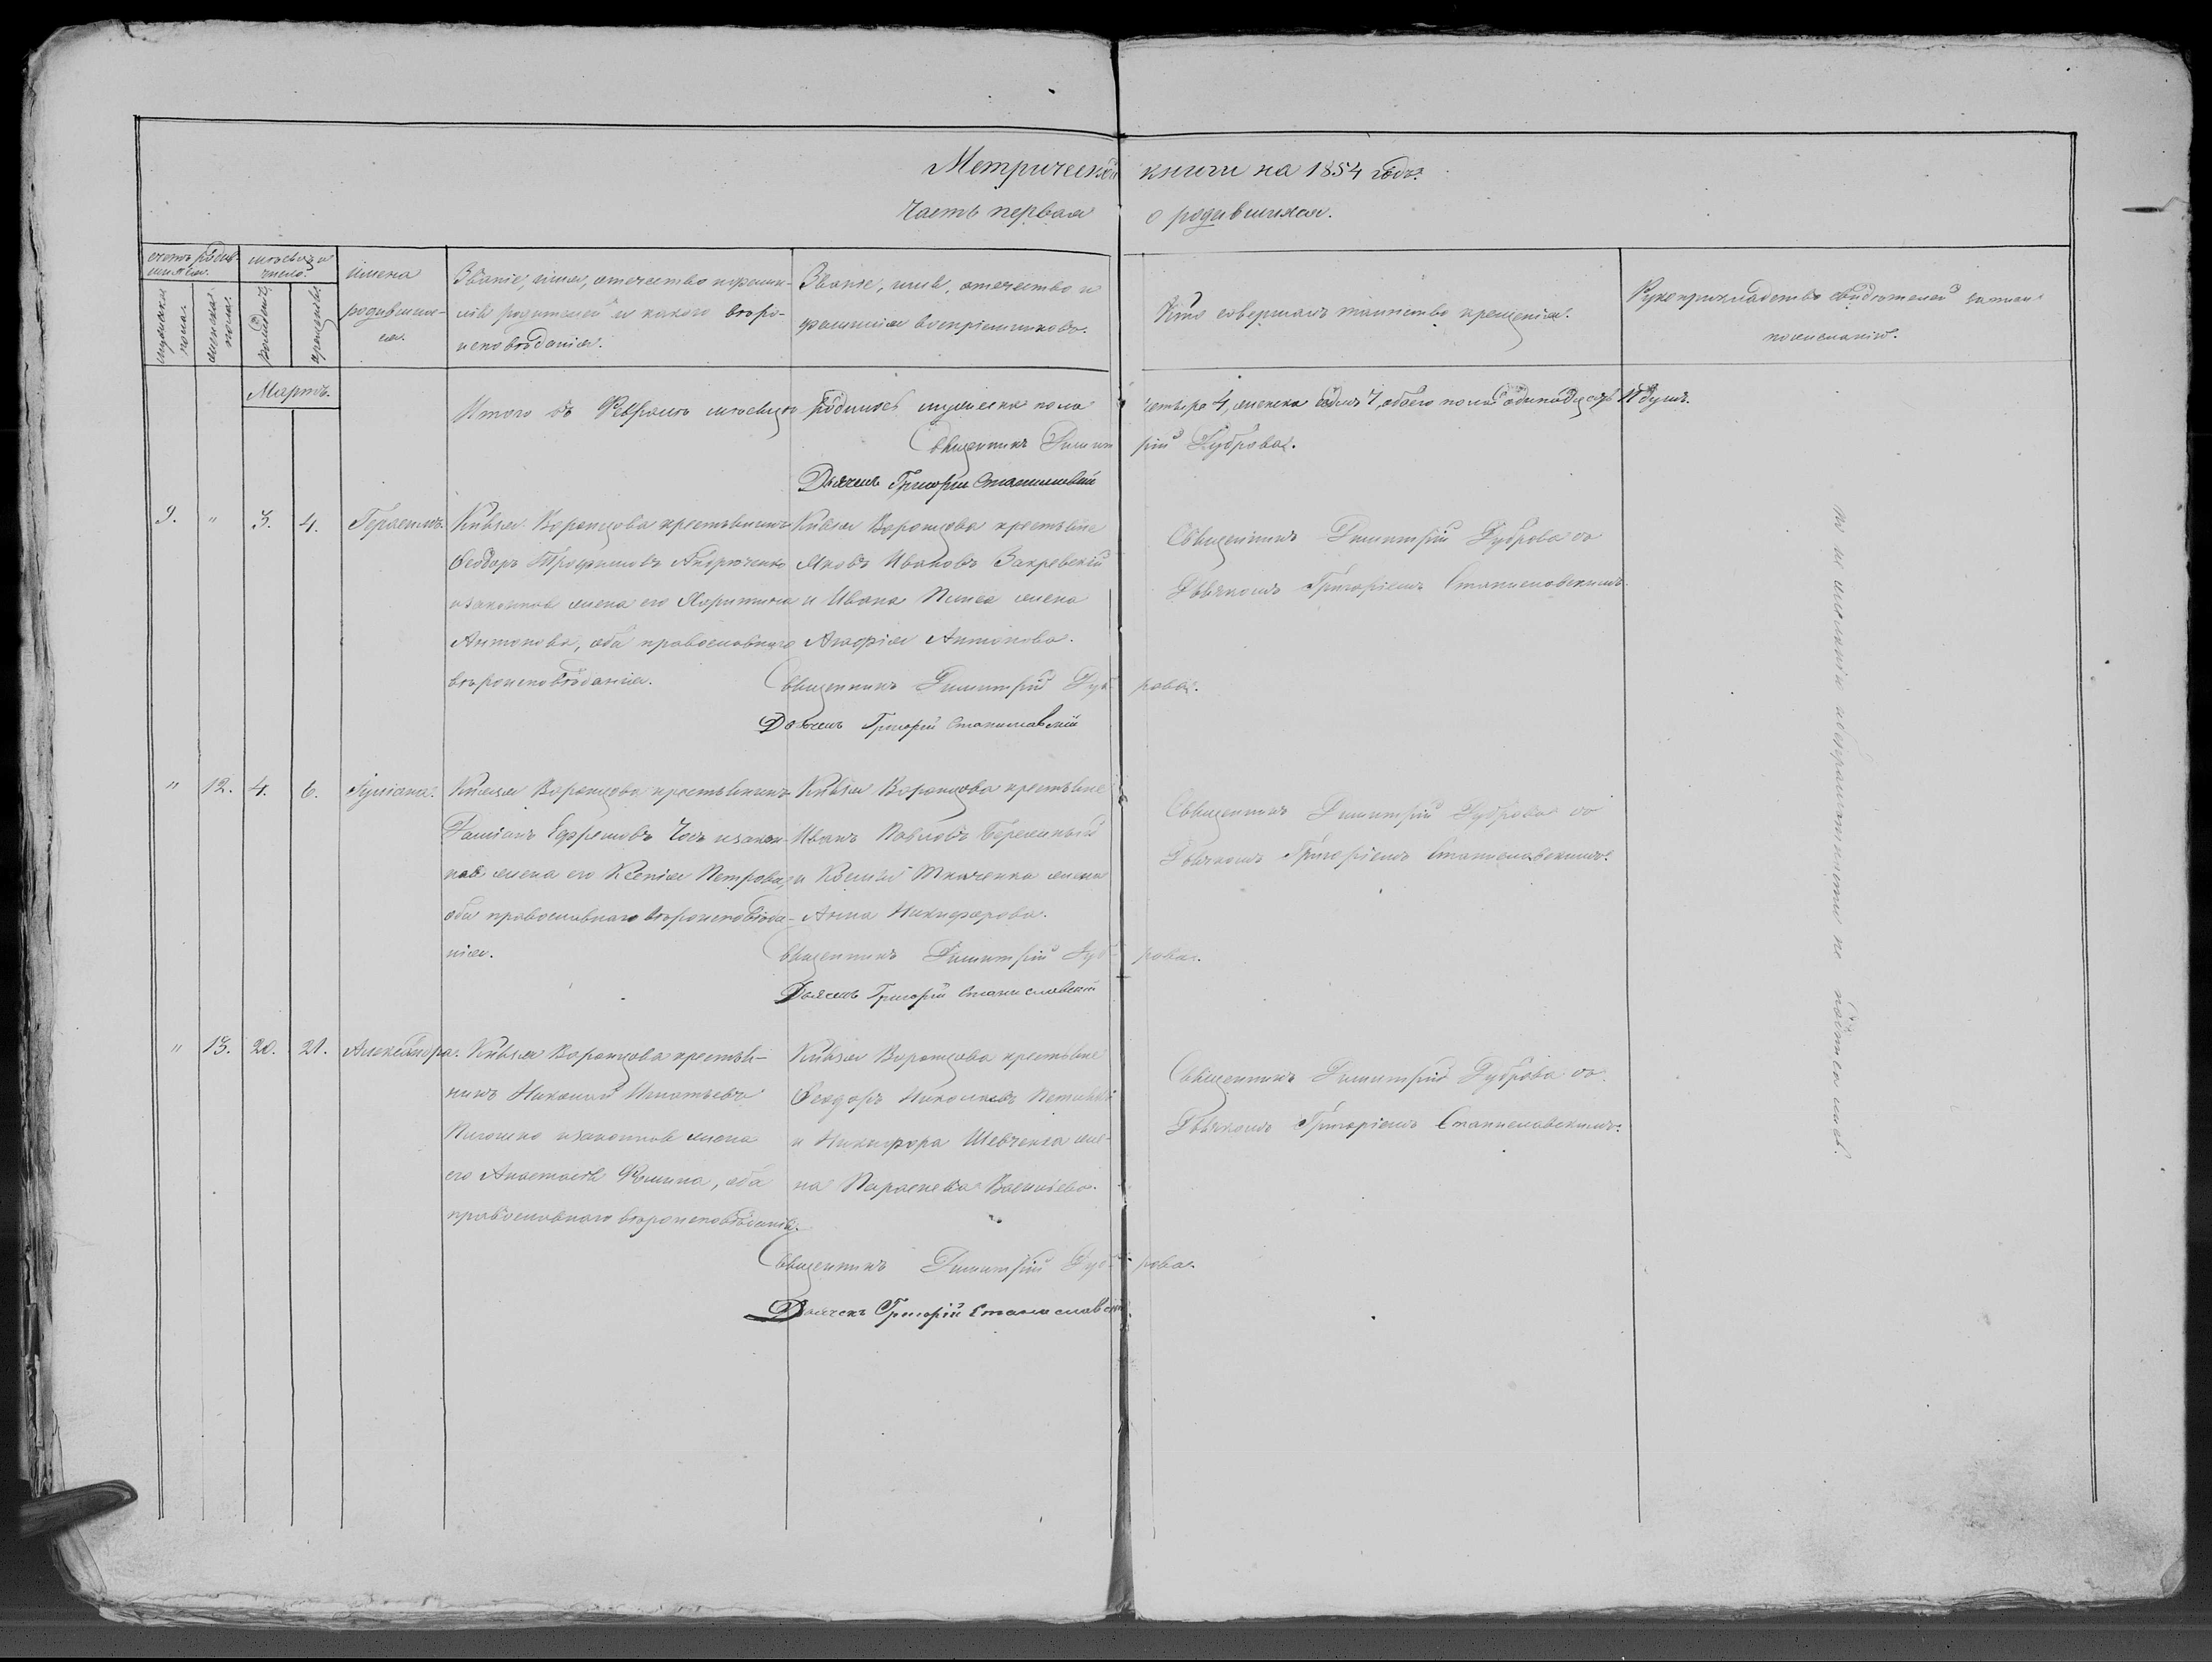 Метрической книги на 1854 годъ.
Часть первая о родившихся.
счетъ родив-
шихся.
мѣсяцъ и
число.
мужеска
пола.
женска
пола.
рожденія
крещенія
имена
родивших-
ся.
Званіе, имя, отечество и фами-
лія родителей и какого вѣро-
исповѣданія.
Званіе, имя, отечество и
фамилія воспріемниковъ.
Кто совершалъ таинство крещенія.
Рукоприкладство свидѣтелей записи
по желанію.
Мартъ.
Итого въ Февралѣ мѣсяцѣ родилось мужеска пола четыре 4, женска 7, обоего пола одинадцать 11 душъ.
Священникъ Димитрій Дуброва.
Дьячекъ Григорій Станиславскій
9. " 3. 4. Герасимъ.
Князя Воронцова крестьянинъ
Феодоръ Трофимовъ Андрюченко
и законная жена его Харитина
Антонова, оба православнаго
вѣроисповѣданія.
Князя Воронцова крестьяне
Яковъ Ивановъ Закревскій
и Ивана жена
Агафія Антонова.
Священникъ Димитрій Дуброва со
Дьячкомъ Григоріемъ Станиславскимъ.
Священникъ Димитрій Дуброва.
Дьячекъ Григорій Станиславскій
" 12. 4. 6. Іуліана.
Князя Воронцова крестьянинъ
Даміанъ Ефремовъ и закон-
ная жена его Ксенія Петрова,
оба православнаго вѣроисповѣда-
нія.
Князя Воронцова крестьяне
Иванъ Павловъ
и Ткаченка жена
Анна Никифорова.
Священникъ Димитрій Дуброва со
Дьячкомъ Григоріемъ Станиславскимъ.
Священникъ Димитрій Дуброва.
Дьячекъ Григорій Станиславскій
" 13. 20. 21. Александра.
Князя Воронцова крестья-
нинъ Николай Игнатьевъ
и законная жена
его Анастасія Фомина, оба
православнаго вѣроисповѣданія.
Князя Воронцова крестьяне
Феодоръ Николаевъ
и Никифора Шевченка же-
на Параскева Васильева.
Священникъ Димитрій Дуброва со
Дьячкомъ Григоріемъ Станиславскимъ.
Священникъ Димитрій Дуброва.
Дьячекъ Григорій Станиславскій.